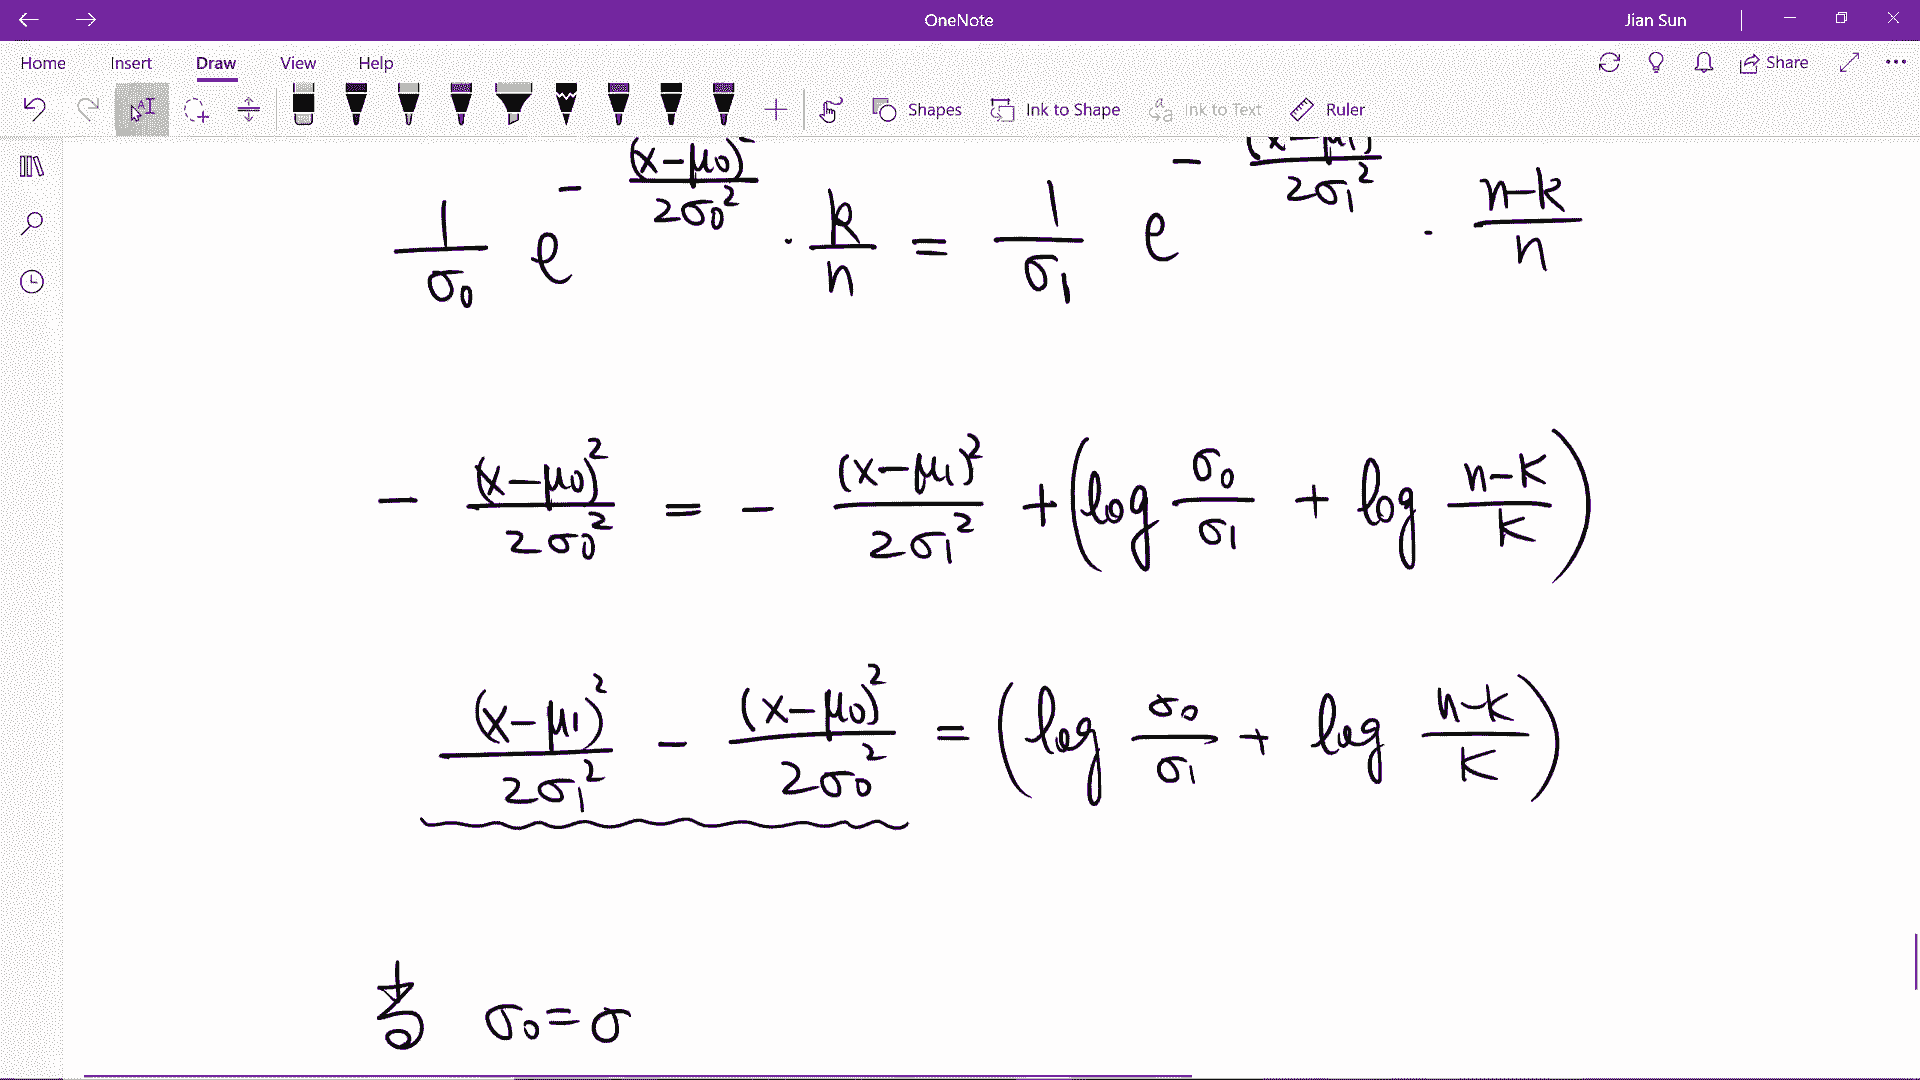 OneNote
Jian Sun
Home Insert Draw View Help
Share
Shapes Ink to Shape Ink to Text Ruler
1/σ₀ e^(-(x-μ₀)²/2σ₀²) · k/n = 1/σ₁ e^(-(x-μ₁)/2σ₁²) · n-k/n
- (x-μ₀)²/2σ₀² = - (x-μ₁)²/2σ₁² + (log σ₀/σ₁ + log n-k/k)
(x-μ₁)²/2σ₁² - (x-μ₀)²/2σ₀² = (log σ₀/σ₁ + log n-k/k)
若 σ₀ = σ